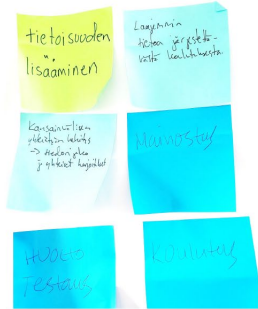 tietoisuuden
lisääminen
Laajemmin
tietoa järjestettä-
västä koulutuksesta
Kansainvälisen
yhteistyön kehitys
-> tiedonjako
ja yhteiset harjoitukset
Mainostus
HUOLTO
Testaus
Koulutus